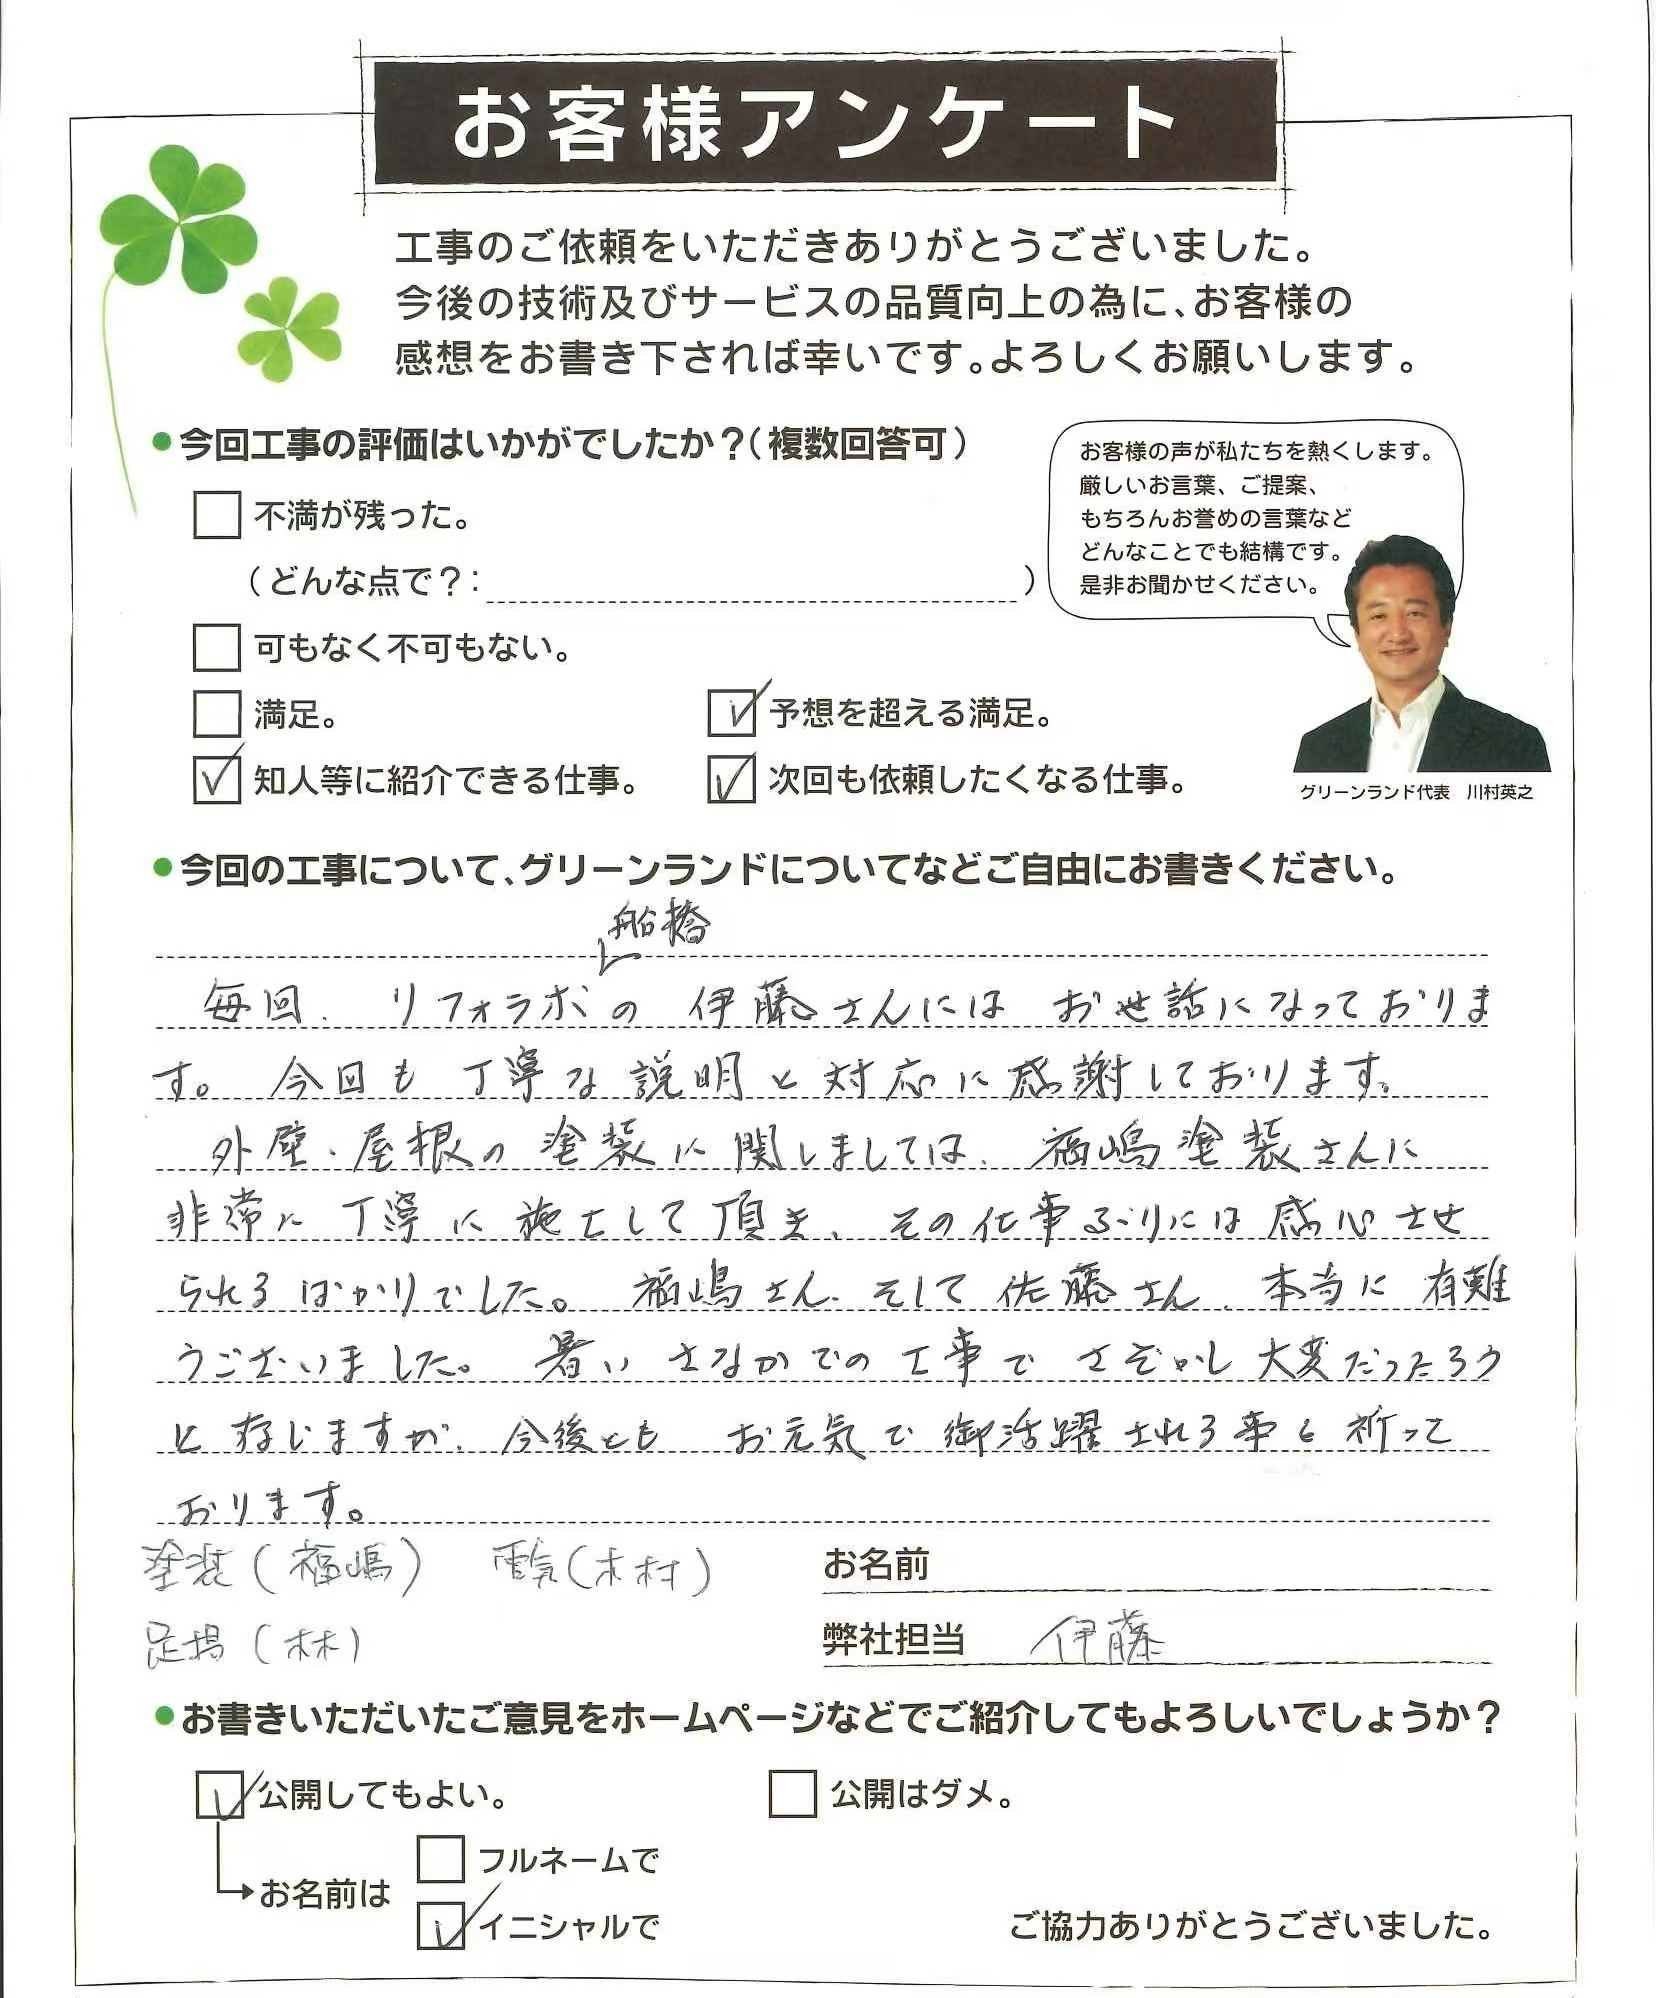 お客様アンケート
工事のご依頼をいただきありがとうございました。
今後の技術及びサービスの品質向上の為に、お客様の
感想をお書き下されば幸いです。よろしくお願いします。
●今回工事の評価はいかがでしたか?(複数回答可)
お客様の声が私たちを熱くします。
厳しいお言葉、ご提案、
もちろんお誉めの言葉など
どんなことでも結構です。
是非お聞かせください。
不満が残った。
(どんな点で?: )
可もなく不可もない。
満足。
予想を超える満足。
知人等に紹介できる仕事。
次回も依頼したくなる仕事。
グリーンランド代表 川村英之
●今回の工事について、グリーンランドについてなどご自由にお書きください。
船橋
毎回、リフォラボの 伊藤さんには お世話になっておりま
す。 今回も 丁寧な 説明と対応に感謝しております。
外壁・屋根の塗装に関しましては、福嶋塗装さんに
非常に丁寧に施工して頂き、その仕事ぶりには感心させ
られるばかりでした。 福嶋さん、そして佐藤さん、本当に有難
うございました。 暑いさなかでの工事でさぞかし大変だったろう
と存じますが、今後とも お元気で御活躍される事を祈って
おります。
塗装(福嶋) 電気(木村)
お名前
足場(林)
弊社担当 伊藤
●お書きいただいたご意見をホームページなどでご紹介してもよろしいでしょうか?
公開してもよい。
公開はダメ。
お名前は
フルネームで
イニシャルで
ご協力ありがとうございました。